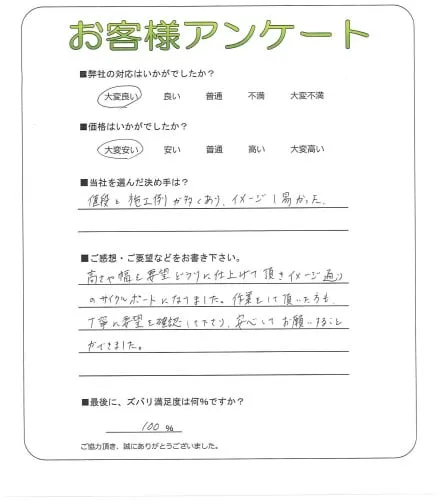 お客様アンケート
■弊社の対応はいかがでしたか?
大変良い 良い 普通 不満 大変不満
■価格はいかがでしたか?
大変安い 安い 普通 高い 大変高い
■当社を選んだ決め手は?
値段と施工例が多くあり、イメージし易かった。
■ご感想・ご要望などをお書き下さい。
高さや幅も要望どうりに仕上げて頂きイメージ通り
のサイクルポートになりました。作業をして頂いた方も
丁寧に要望を確認して下さり、安心してお願いすること
ができました。
■最後に、ズバリ満足度は何%ですか?
100 %
ご協力頂き、誠にありがとうございました。